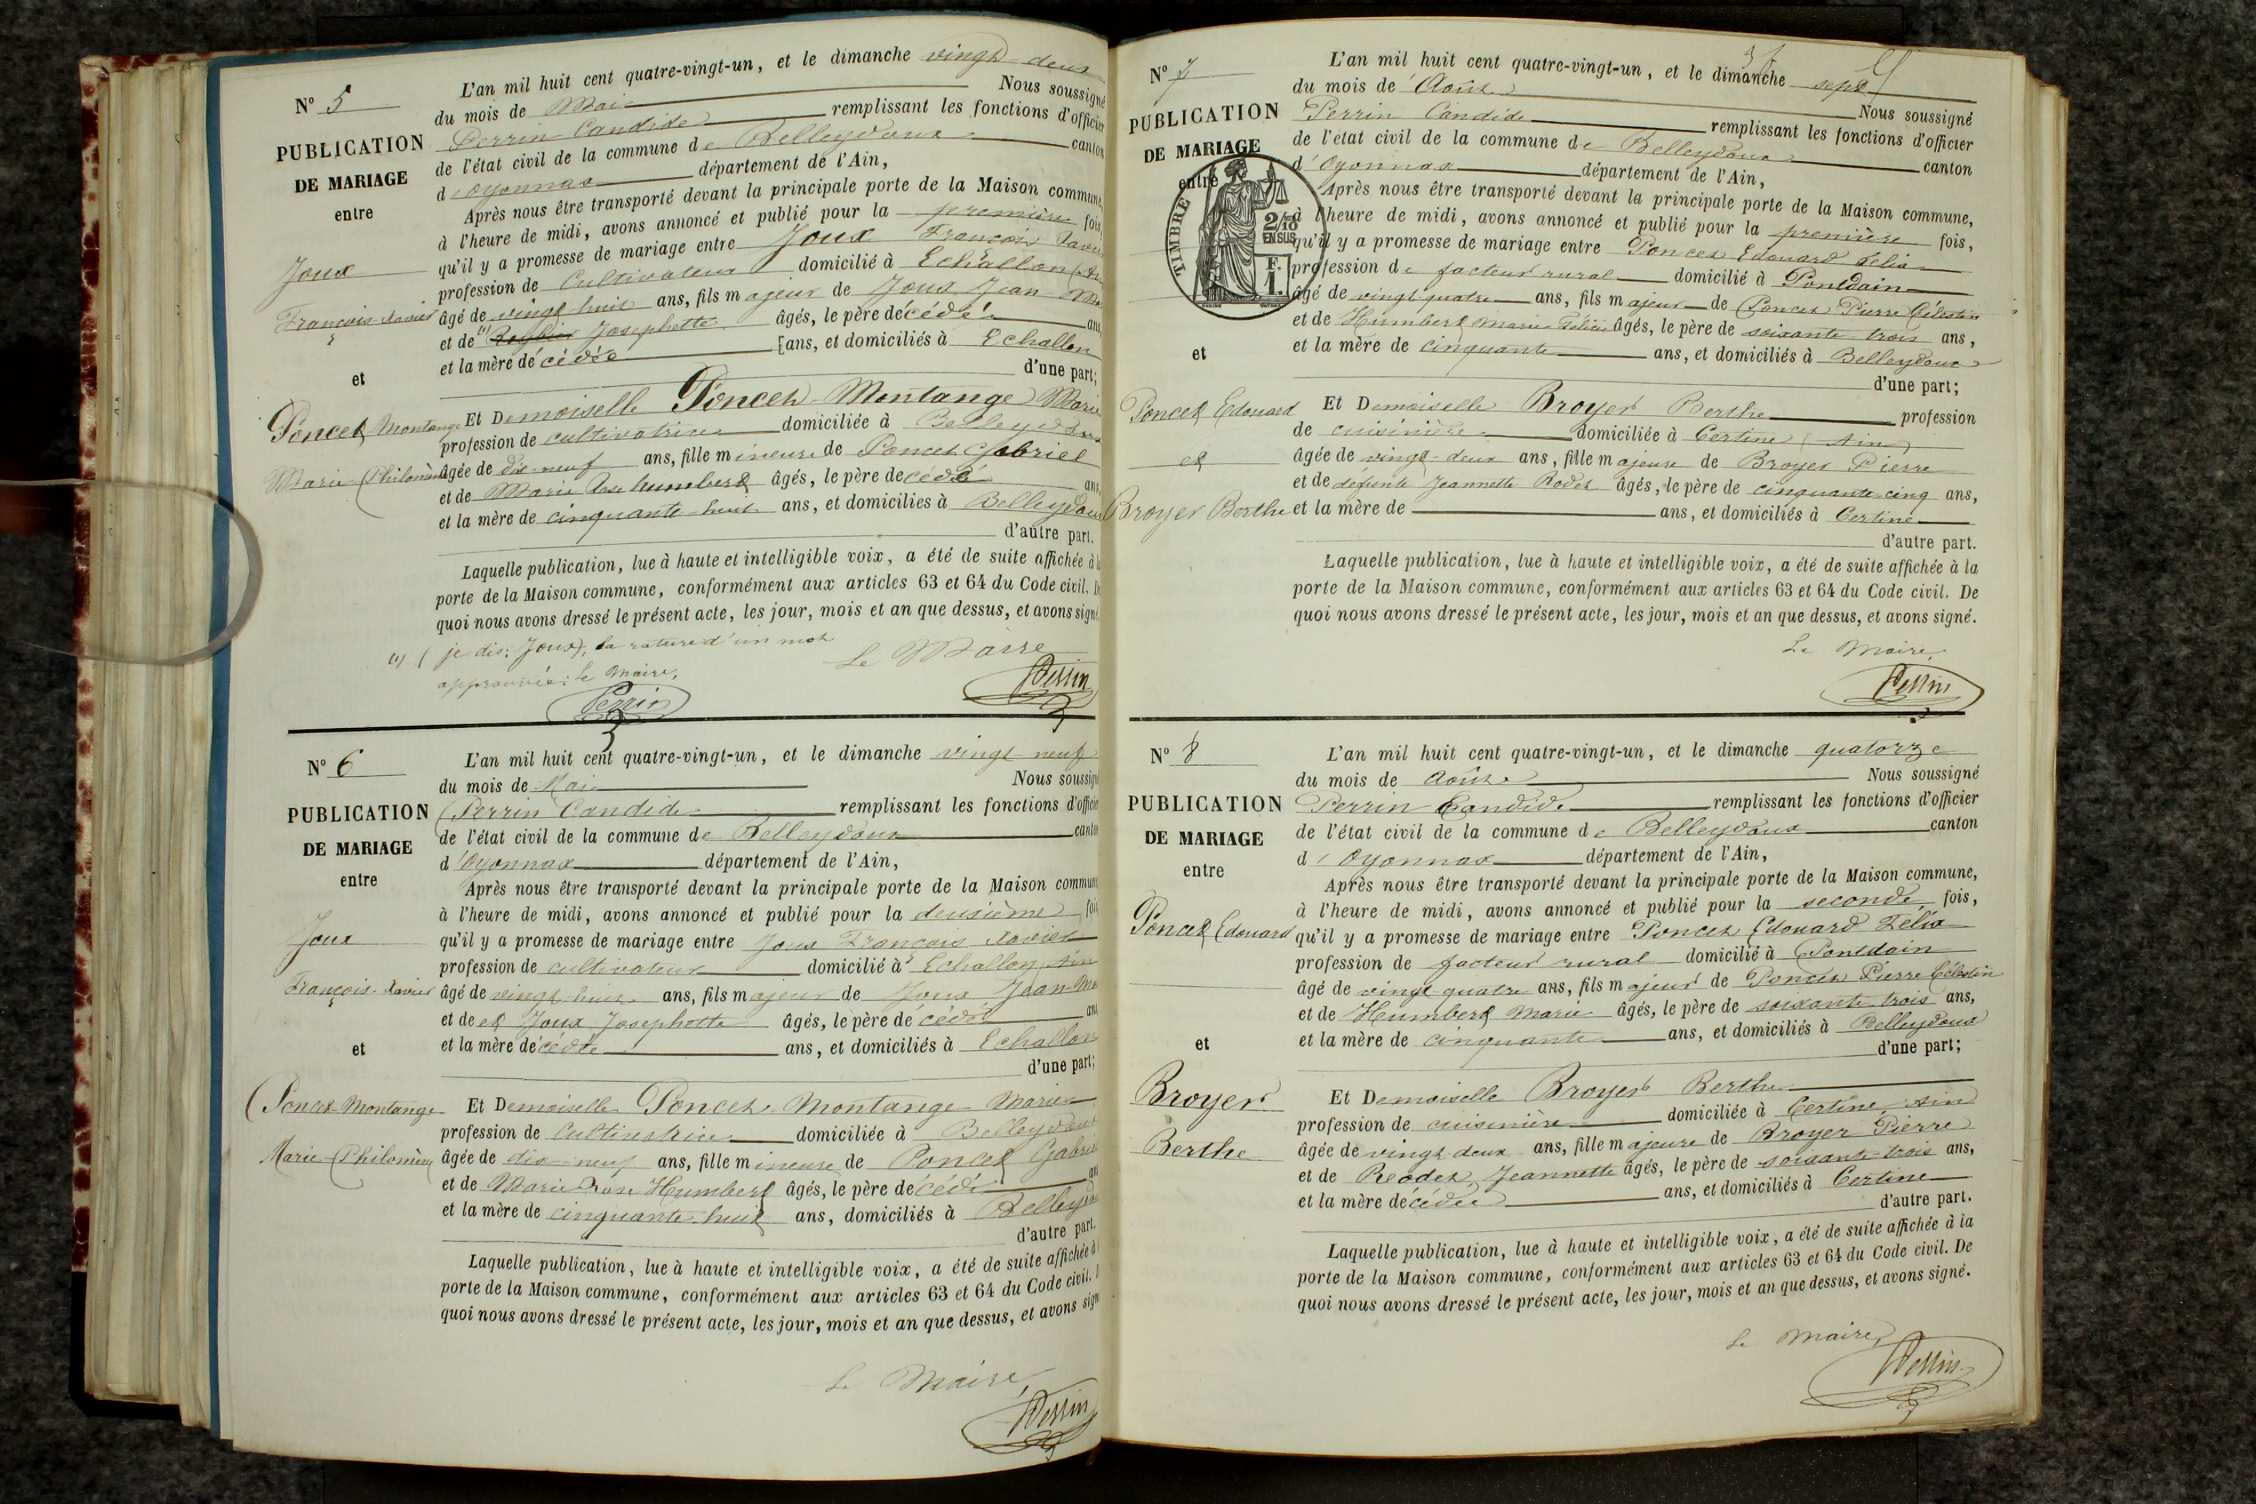 N° 5
PUBLICATION
DE MARIAGE
entre
Joux
François Xavier
et
Poncet Montange
Marie Philomène
L'an mil huit cent quatre-vingt-un, et le dimanche vingt deux
du mois de Mai Nous soussigné
Perrin Candide remplissant les fonctions d'officier
de l'état civil de la commune de Belleydoux canton
d'Oyonnax département de l'Ain,
Après nous être transporté devant la principale porte de la Maison commune,
à l'heure de midi, avons annoncé et publié pour la première fois,
qu'il y a promesse de mariage entre Joux François Xavier
profession de Cultivateur domicilié à Echallon (Ain
âgé de vingt huit ans, fils majeur de Joux Jean
et de (1) Josephette âgés, le père décédé ans,
et la mère décédée [ans, et domiciliés à Echallon
d'une part;
Et Demoiselle Poncet Montange Marie
profession de cultivatrice domiciliée à Belleydoux
âgée de dix-neuf ans, fille mineure de Poncet Gabriel
et de Marie Rose humbert âgés, le père décédé ans,
et la mère de cinquante huit ans, et domiciliés à Belleydoux
d'autre part.
Laquelle publication, lue à haute et intelligible voix, a été de suite affichée à la
porte de la Maison commune, conformément aux articles 63 et 64 du Code civil. De
quoi nous avons dressé le présent acte, les jour, mois et an que dessus, et avons signé.
(1) (je dis: Joux), la rature d'un mot
approuvée: le Maire,
Perrin
Le Maire
Perrin
N° 6
PUBLICATION
DE MARIAGE
entre
Joux
François Xavier
et
Poncet Montange
Marie Philomène
L'an mil huit cent quatre-vingt-un, et le dimanche vingt neuf
du mois de Mai Nous soussigné
Perrin Candide remplissant les fonctions d'officier
de l'état civil de la commune de Belleydoux canton
d'Oyonnax département de l'Ain,
Après nous être transporté devant la principale porte de la Maison commune,
à l'heure de midi, avons annoncé et publié pour la deuxième fois
qu'il y a promesse de mariage entre Joux François Xavier
profession de cultivateur domicilié à Echallon Ain
âgé de vingt huit ans, fils majeur de Joux Jean
et de et Joux Josephette âgés, le père décédé ans
et la mère décédée ans, et domiciliés à Echallon
d'une part;
Et Demoiselle Poncet Montange Marie
profession de Cultivatrice domiciliée à Belleydoux
âgée de dix-neuf ans, fille mineure de Poncet Gabriel
et de Marie Rose Humbert âgés, le père décédé ans
et la mère de cinquante huit ans, domiciliés à Belleydoux
d'autre part.
Laquelle publication, lue à haute et intelligible voix, a été de suite affichée à
porte de la Maison commune, conformément aux articles 63 et 64 du Code civil.
quoi nous avons dressé le présent acte, les jour, mois et an que dessus, et avons signé
Le Maire,
Perrin
N° 7
PUBLICATION
DE MARIAGE
entre
TIMBRE
2/10
EN SUS
1 F.
et
Poncet Edouard
et
Broyer Berthe
L'an mil huit cent quatre-vingt-un, et le dimanche sept
du mois de Août Nous soussigné
Perrin Candide remplissant les fonctions d'officier
de l'état civil de la commune de Belleydoux canton
d'Oyonnax département de l'Ain,
Après nous être transporté devant la principale porte de la Maison commune,
à l'heure de midi, avons annoncé et publié pour la première fois,
qu'il y a promesse de mariage entre Poncet Edouard Félix
profession de facteur rural domicilié à Pontdain
âgé de vingt quatre ans, fils majeur de Poncet Pierre Célestin
et de Humbert Marie Félicie âgés, le père de soixante trois ans,
et la mère de cinquante ans, et domiciliés à Belleydoux
d'une part;
Et Demoiselle Broyer Berthe profession
de cuisinière domiciliée à Certine (Ain)
âgée de vingt-deux ans, fille majeure de Broyer Pierre
et de défunte Jeannette Rodet âgés, le père de cinquante cinq ans,
et la mère de ans, et domiciliés à Certine
d'autre part.
Laquelle publication, lue à haute et intelligible voix, a été de suite affichée à la
porte de la Maison commune, conformément aux articles 63 et 64 du Code civil. De
quoi nous avons dressé le présent acte, les jour, mois et an que dessus, et avons signé.
Le Maire,
Perrin
N° 8
PUBLICATION
DE MARIAGE
entre
Poncet Edouard
et
Broyer
Berthe
L'an mil huit cent quatre-vingt-un, et le dimanche quatorze
du mois de Août Nous soussigné
Perrin Candide remplissant les fonctions d'officier
de l'état civil de la commune de Belleydoux canton
d'Oyonnax département de l'Ain,
Après nous être transporté devant la principale porte de la Maison commune,
à l'heure de midi, avons annoncé et publié pour la seconde fois,
qu'il y a promesse de mariage entre Poncet Edouard Félix
profession de facteur rural domicilié à Pontdain
âgé de vingt quatre ans, fils majeur de Poncet Pierre Célestin
et de Humbert Marie âgés, le père de soixante trois ans,
et la mère de cinquante ans, et domiciliés à Belleydoux
d'une part;
Et Demoiselle Broyer Berthe
profession de cuisinière domiciliée à Certine Ain
âgée de vingt deux ans, fille majeure de Broyer Pierre
et de Rodet Jeannette âgés, le père de soixante trois ans,
et la mère décédée ans, et domiciliés à Certine
d'autre part.
Laquelle publication, lue à haute et intelligible voix, a été de suite affichée à la
porte de la Maison commune, conformément aux articles 63 et 64 du Code civil. De
quoi nous avons dressé le présent acte, les jour, mois et an que dessus, et avons signé.
Le Maire,
Perrin